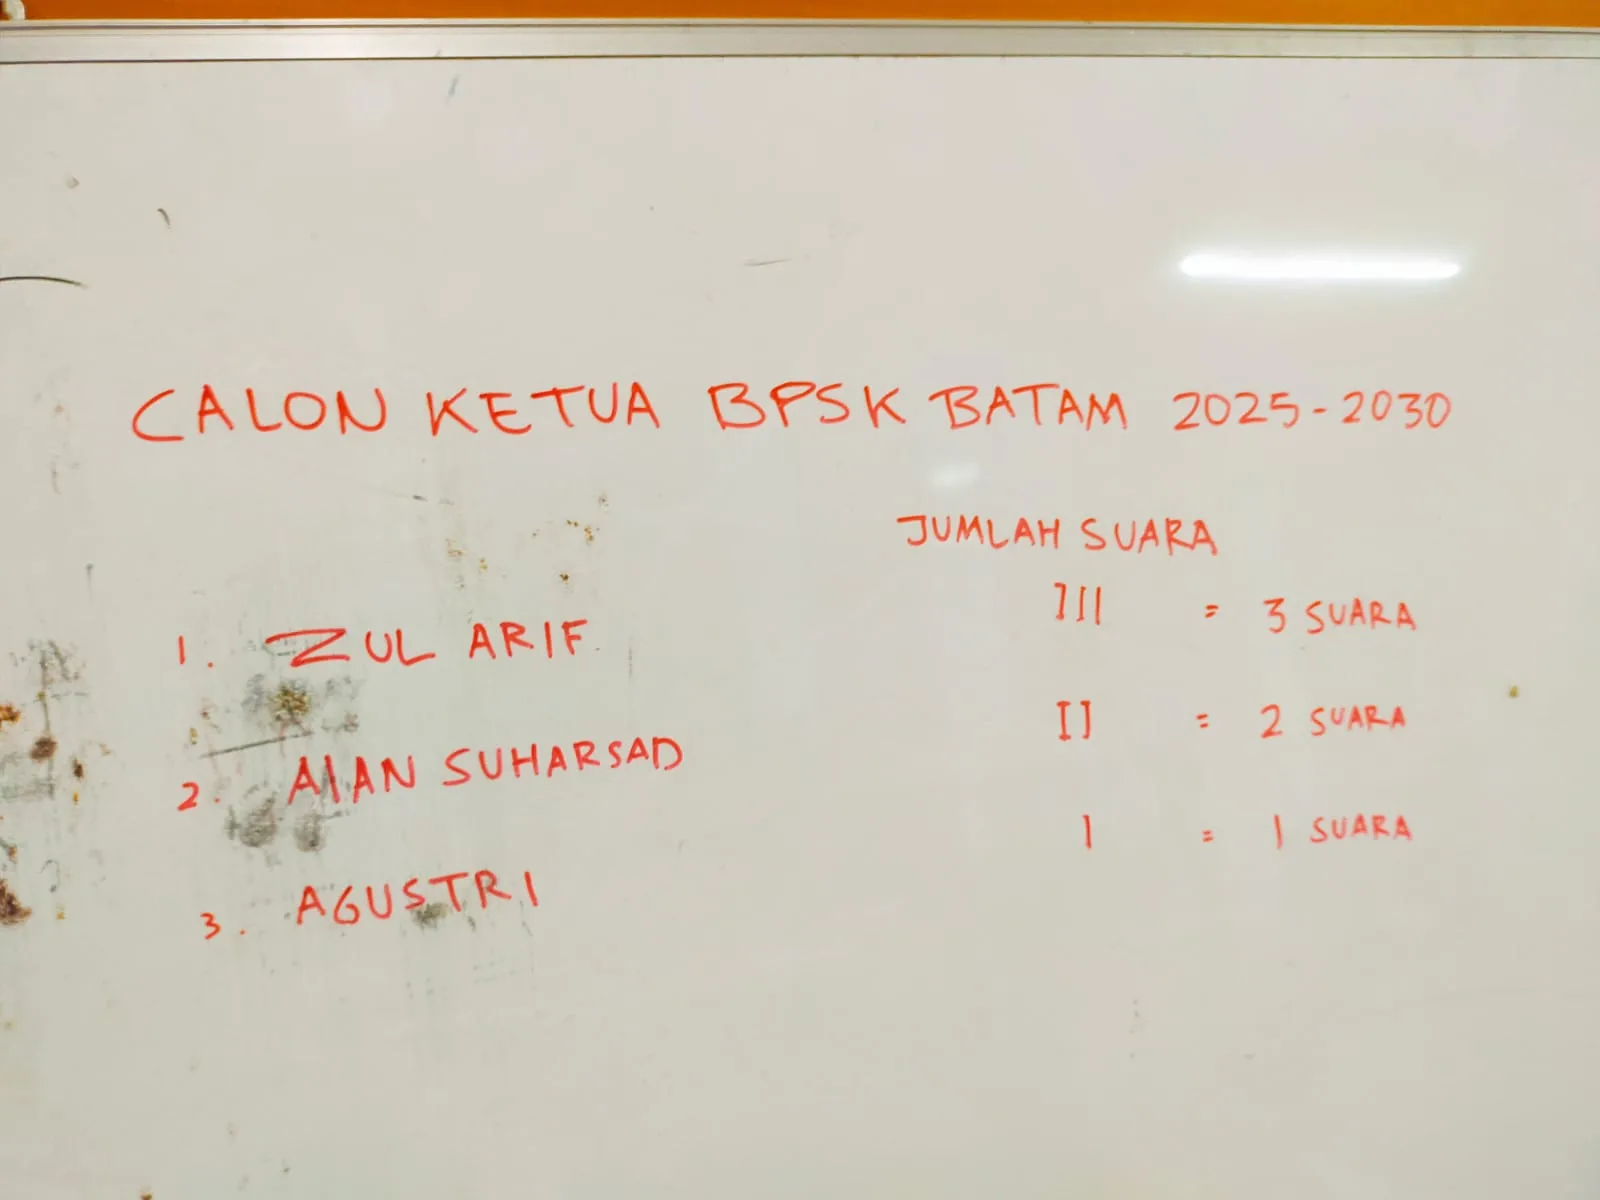 CALON KETUA BPSK BATAM 2025-2030
JUMLAH SUARA
1. ZUL ARIF III = 3 SUARA
2. AIAN SUHARSAD II = 2 SUARA
3. AGUSTRI I = 1 SUARA